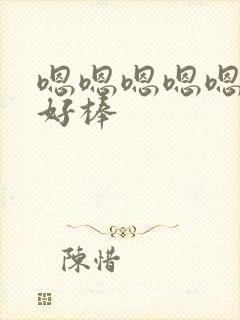 嗯嗯嗯嗯嗯
好棒
陳惜